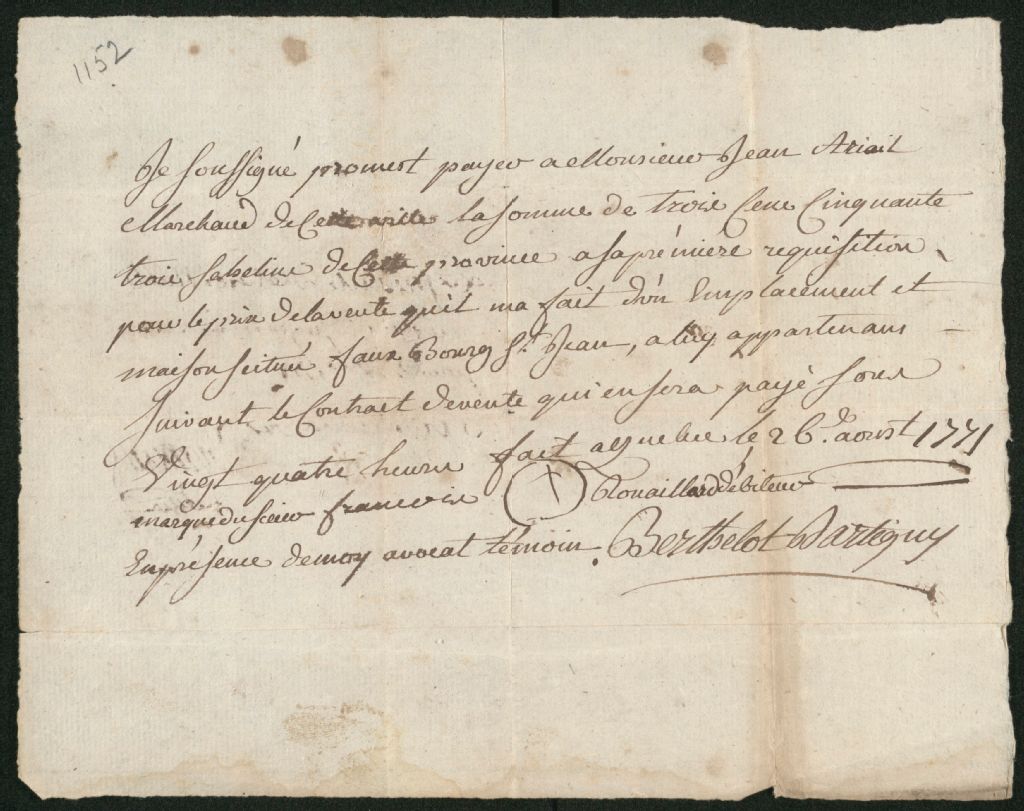 1152
Je soussigné promest payer a Monsieur Jean
Marchand de Cette ville la somme de trois Cent Cinquante
trois de Cette province a sa prémiere requisition
pour le prix de la vente qu'il ma fait d'un Emplacement et
maison scitué faux Bourg St. Jean, a luy appartenans
Suivant le Contract de vente qui en sera payé sous
Vingt quatre heures fait a quebec le 26e. aoust 1771
marque du Sieur francois + Rouaillard débiteur
En présence de moy avocat témoin. Berthelot Dartigny